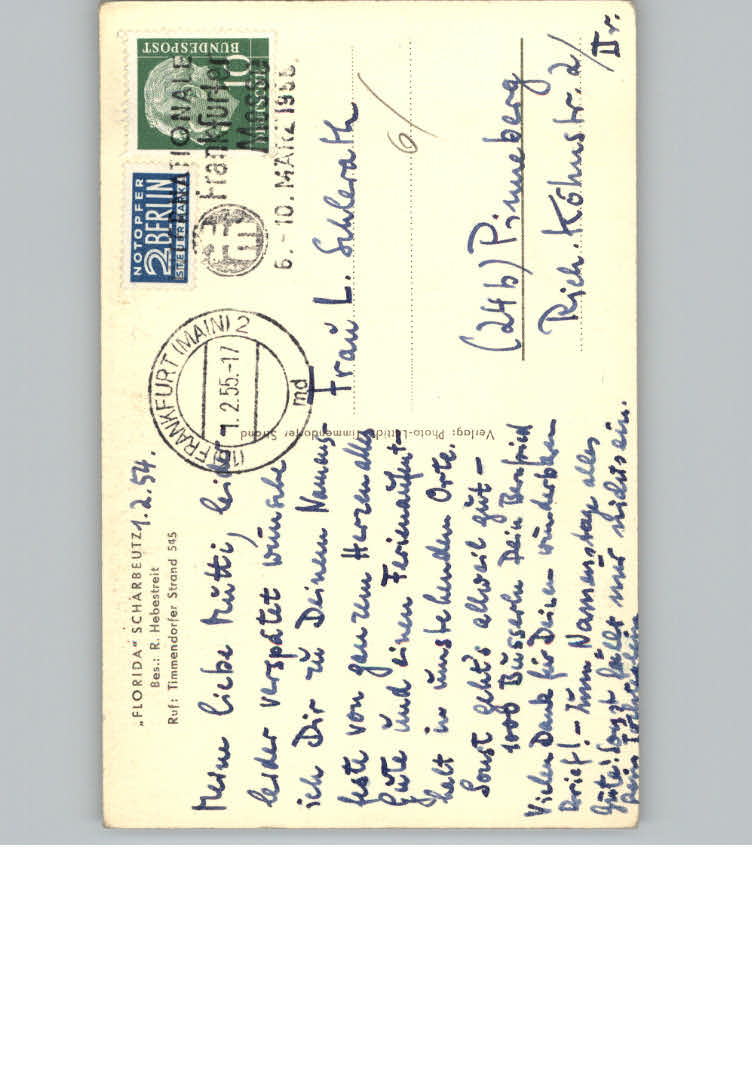 „FLORIDA“ SCHARBEUTZ
Bes.: R. Hebestreit
Ruf: Timmendorfer Strand 545
1.2.54.
Meine liebe Mutti, leider
leider verspätet wünsche
ich Dir zu Deinem Namens-
feste von ganzem Herzen alles
Gute und einen Ferienaufent-
halt in umstehenden Orte.
Sonst geht's allweil gut –
1000 Busserln Dein Bernfried
Vielen Dank für Deinen wunderbaren
Brief! – Zum Namenstag alles
Gute! Sonst fällt mir nichts ein.
Dein
Verlag: Photo-Lüttich, Timmendorfer Strand
NOTOPFER
2 BERLIN
STEUERMARKE
BUNDESPOST
10
DEUTSCHE
(16) FRANKFURT (MAIN) 2
1.2.55.-17
md
INTERNATIONALE
Frankfurter
Messe
6.-10. MÄRZ 1955.
6/
Frau L. Schlerath
(24b) Pinneberg
Rich. Köhnstr. 2/
II r.